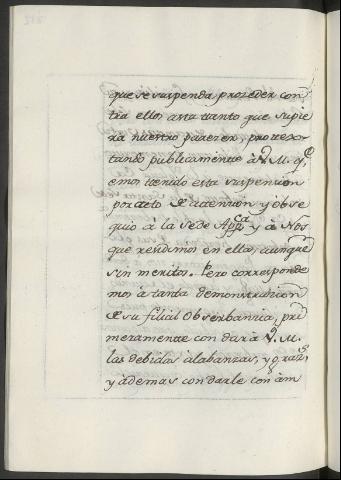 que se suspenda prozeder con
tra ellos asta tanto que supie
rà nuestro parezer, protex
tando publicamente à V. M. q.e
emos tenido esta suspension
por acto de attencion y obse
quio à la Sede App.ca y à Nos
que rendimos en ella, aunque
sin meritos. Pero corresponde
mos à tanta demonstracion
de su filial Obserbancia, pri
meramente con dar à V. M.
las debidas alabanzas, y graz.s,
y además con darle con àm